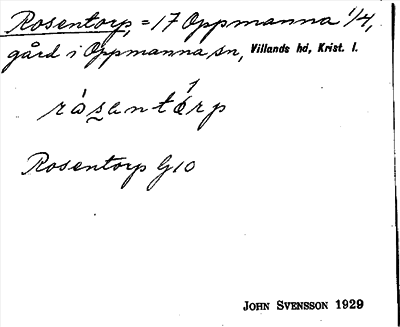 Rosentorp, = 17 Oppmanna 1/4,
gård i Oppmanna sn, Villands hd, Krist. l.
rósantórp
Rosentorp G10
JOHN SVENSSON 1929